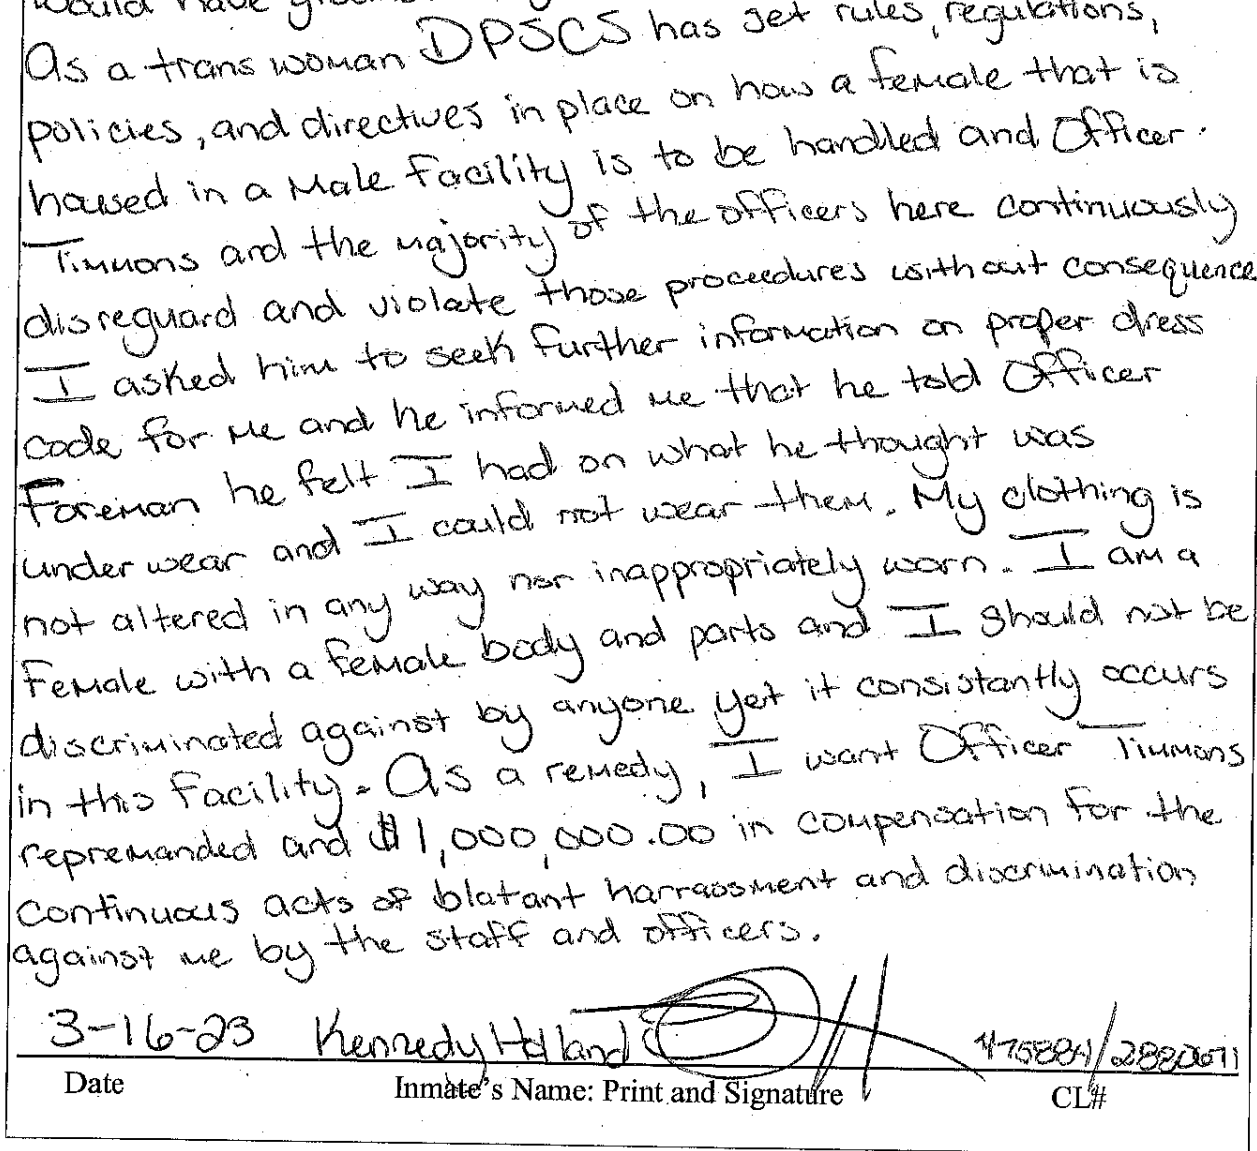 would have
As a trans woman DPSCS has set rules, regulations,
policies, and directives in place on how a female that is
housed in a Male Facility is to be handled and Officer
Timmons and the majority of the officers here continuously
disreguard and violate those proceedures without consequence
I asked him to seek further information on proper dress
code for me and he informed me that he told Officer
Foreman he felt I had on what he thought was
under wear and I could not wear them. My clothing is
not altered in any way nor inappropriately worn. I am a
Female with a female body and parts and I should not be
discriminated against by anyone yet it consistantly occurs
in this Facility. As a remedy, I want Officer Timmons
repremanded and $1,000,000.00 in compensation for the
continuous acts of blatant harrassment and discrimination
against me by the staff and officers.
3-16-23 Kennedy Holland 2880671
Date Inmate's Name: Print and Signature CL#